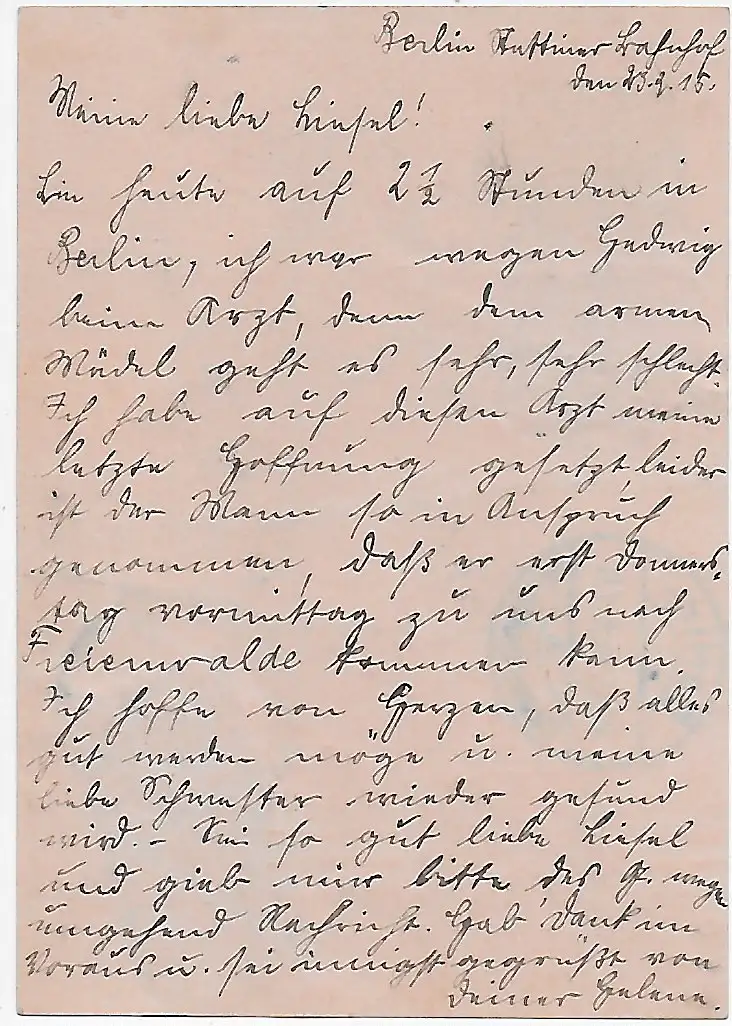 Berlin Stettiner Bahnhof
den 23.9.15.
Meine liebe Liesel!
Bin heute auf 2 1/2 Stunden in
Berlin, ich war wegen Hedwig
beim Arzt, denn dem armen
Mädel geht es sehr, sehr schlecht.
Ich habe auf diesen Arzt meine
letzte Hoffnung gesetzt, leider
ist der Mann so in Anspruch
genommen, daß er erst Donners-
tag vormittag zu uns nach
Freienwalde kommen kann.
Ich hoffe von Herzen, daß alles
gut werden möge u. meine
liebe Schwester wieder gesund
wird. - Sei so gut liebe Liesel
und gieb mir bitte des G. wegen
umgehend Nachricht. Hab' Dank im
Voraus u. sei innigst gegrüßt von
Deiner Helene.